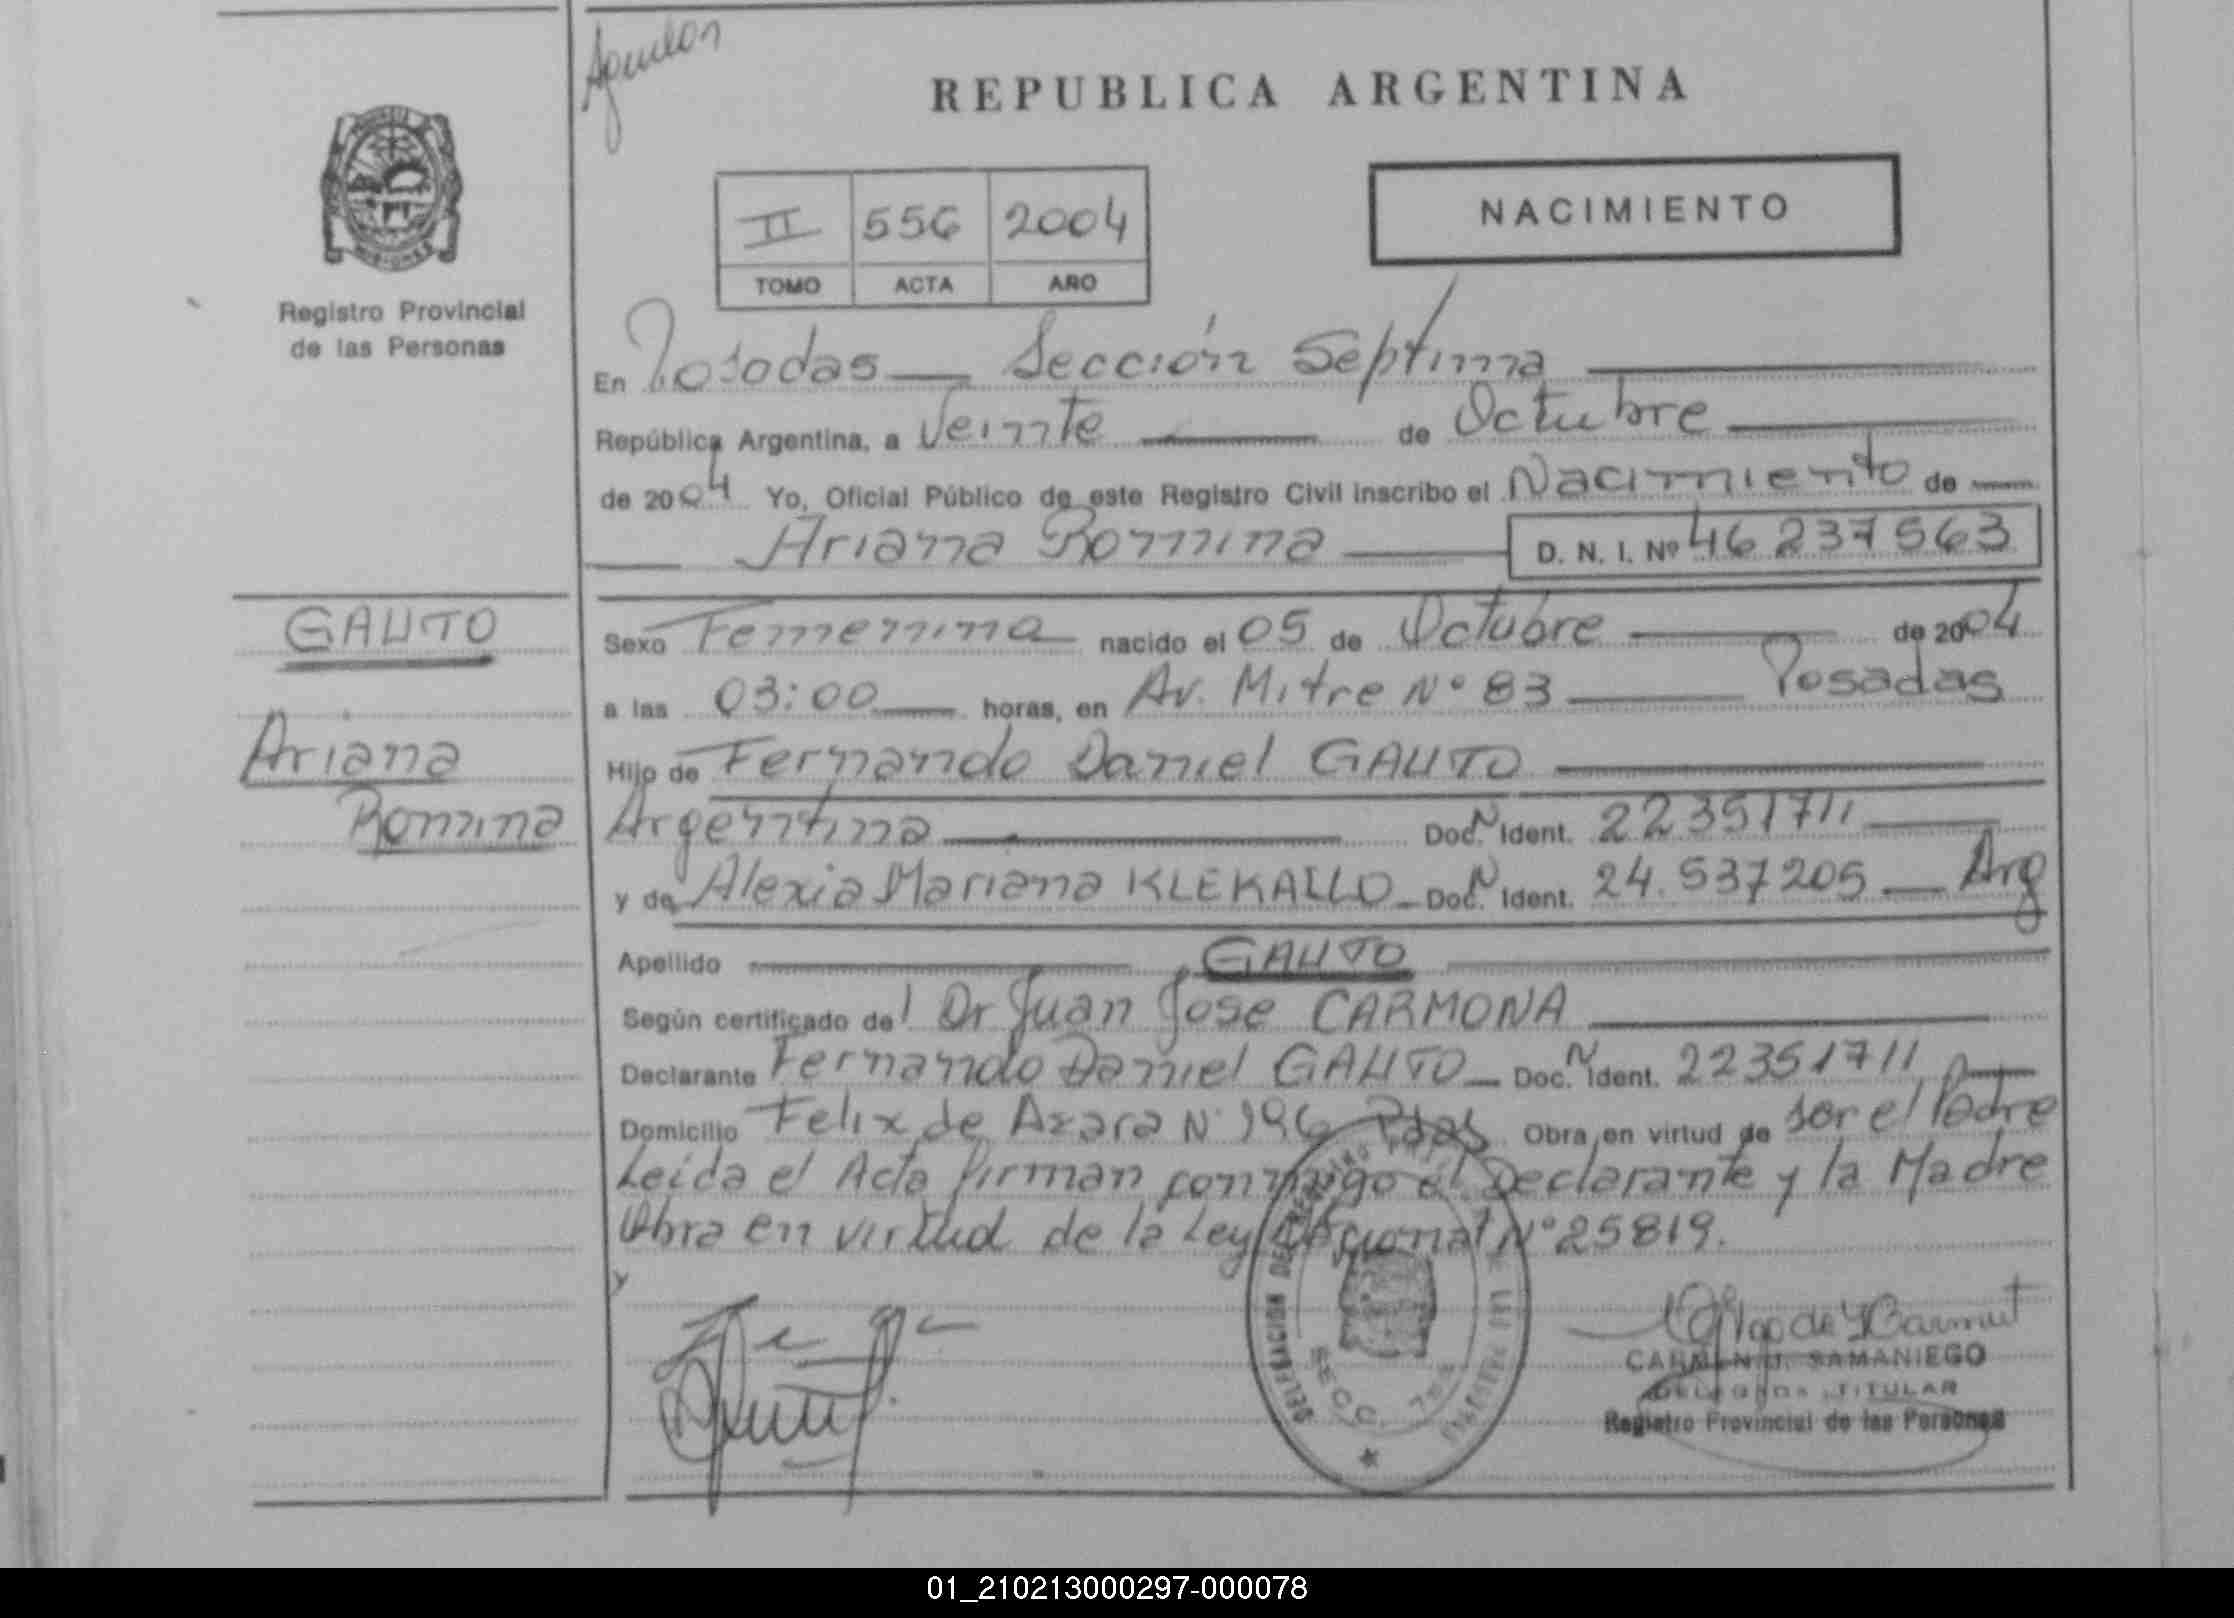 Aguilar
REPUBLICA ARGENTINA
MISIONES
Registro Provincial
de las Personas
II 556 2004
TOMO ACTA AÑO
NACIMIENTO
En Posadas — Sección Séptima
República Argentina, a Veinte — de Octubre
de 2004 Yo, Oficial Público de este Registro Civil inscribo el Nacimiento de
Ariana Romina — D. N. I. Nº 46 237 563
GAUTO
Ariana
Romina
Sexo Femenina nacido el 05 de Octubre — de 2004
a las 03:00 — horas, en Av. Mitre Nº 83 — Posadas
Hijo de Fernando Daniel GAUTO
Argentina — Doc. N Ident. 22351711
y de Alexia Mariana KLEKAILO — Doc. N Ident. 24.537205 — Arg
Apellido GAUTO
Según certificado del Dr Juan Jose CARMONA
Declarante Fernando Daniel GAUTO — Doc. N Ident. 22351711
Domicilio Felix de Azara Nº 196 Pdas Obra en virtud de ser el Padre
Leida el Acta firman conmigo el Declarante y la Madre
Obra en virtud de la Ley Nacional Nº 25819.
SECC. 7ma
CARMEN J. SAMANIEGO
DELEGADA TITULAR
Registro Provincial de las Personas
01_210213000297-000078